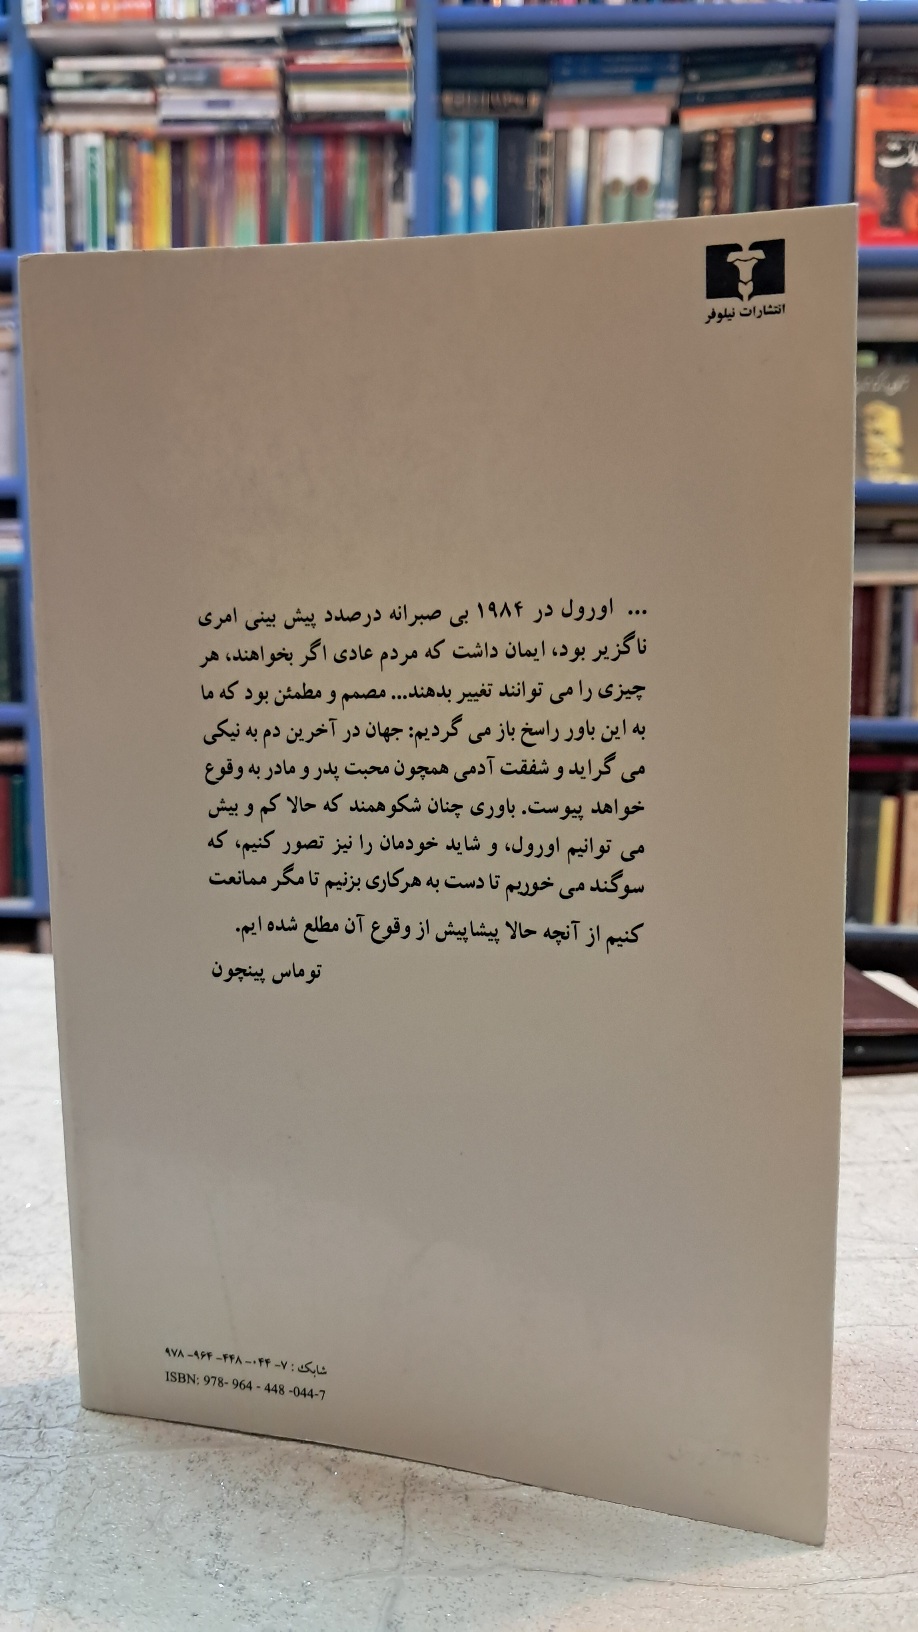 انتشارات نیلوفر
... اورول در ۱۹۸۴ بی صبرانه درصدد پیش بینی امری
ناگزیر بود، ایمان داشت که مردم عادی اگر بخواهند، هر
چیزی را می توانند تغییر بدهند... مصمم و مطمئن بود که ما
به این باور راسخ باز می گردیم: جهان در آخرین دم به نیکی
می گراید و شفقت آدمی همچون محبت پدر و مادر به وقوع
خواهد پیوست. باوری چنان شکوهمند که حالا کم و بیش
می توانیم اورول، و شاید خودمان را نیز تصور کنیم، که
سوگند می خوریم تا دست به هرکاری بزنیم تا مگر ممانعت
کنیم از آنچه حالا پیشاپیش از وقوع آن مطلع شده ایم.
توماس پینچون
شابک : ۷- ۰۴۴- ۴۴۸- ۹۶۴- ۹۷۸
ISBN: 978- 964 - 448 -044-7